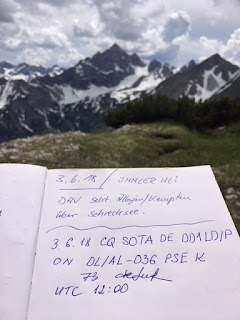 3.6.18 / IMMLER ULI
DAV Sekt. Allgäu/Kempten
über Schrecksee.
3 6.18 CQ SOTA DE DD1LD/P
ON DL/AL-036 PSE K
73
UTC 12:00